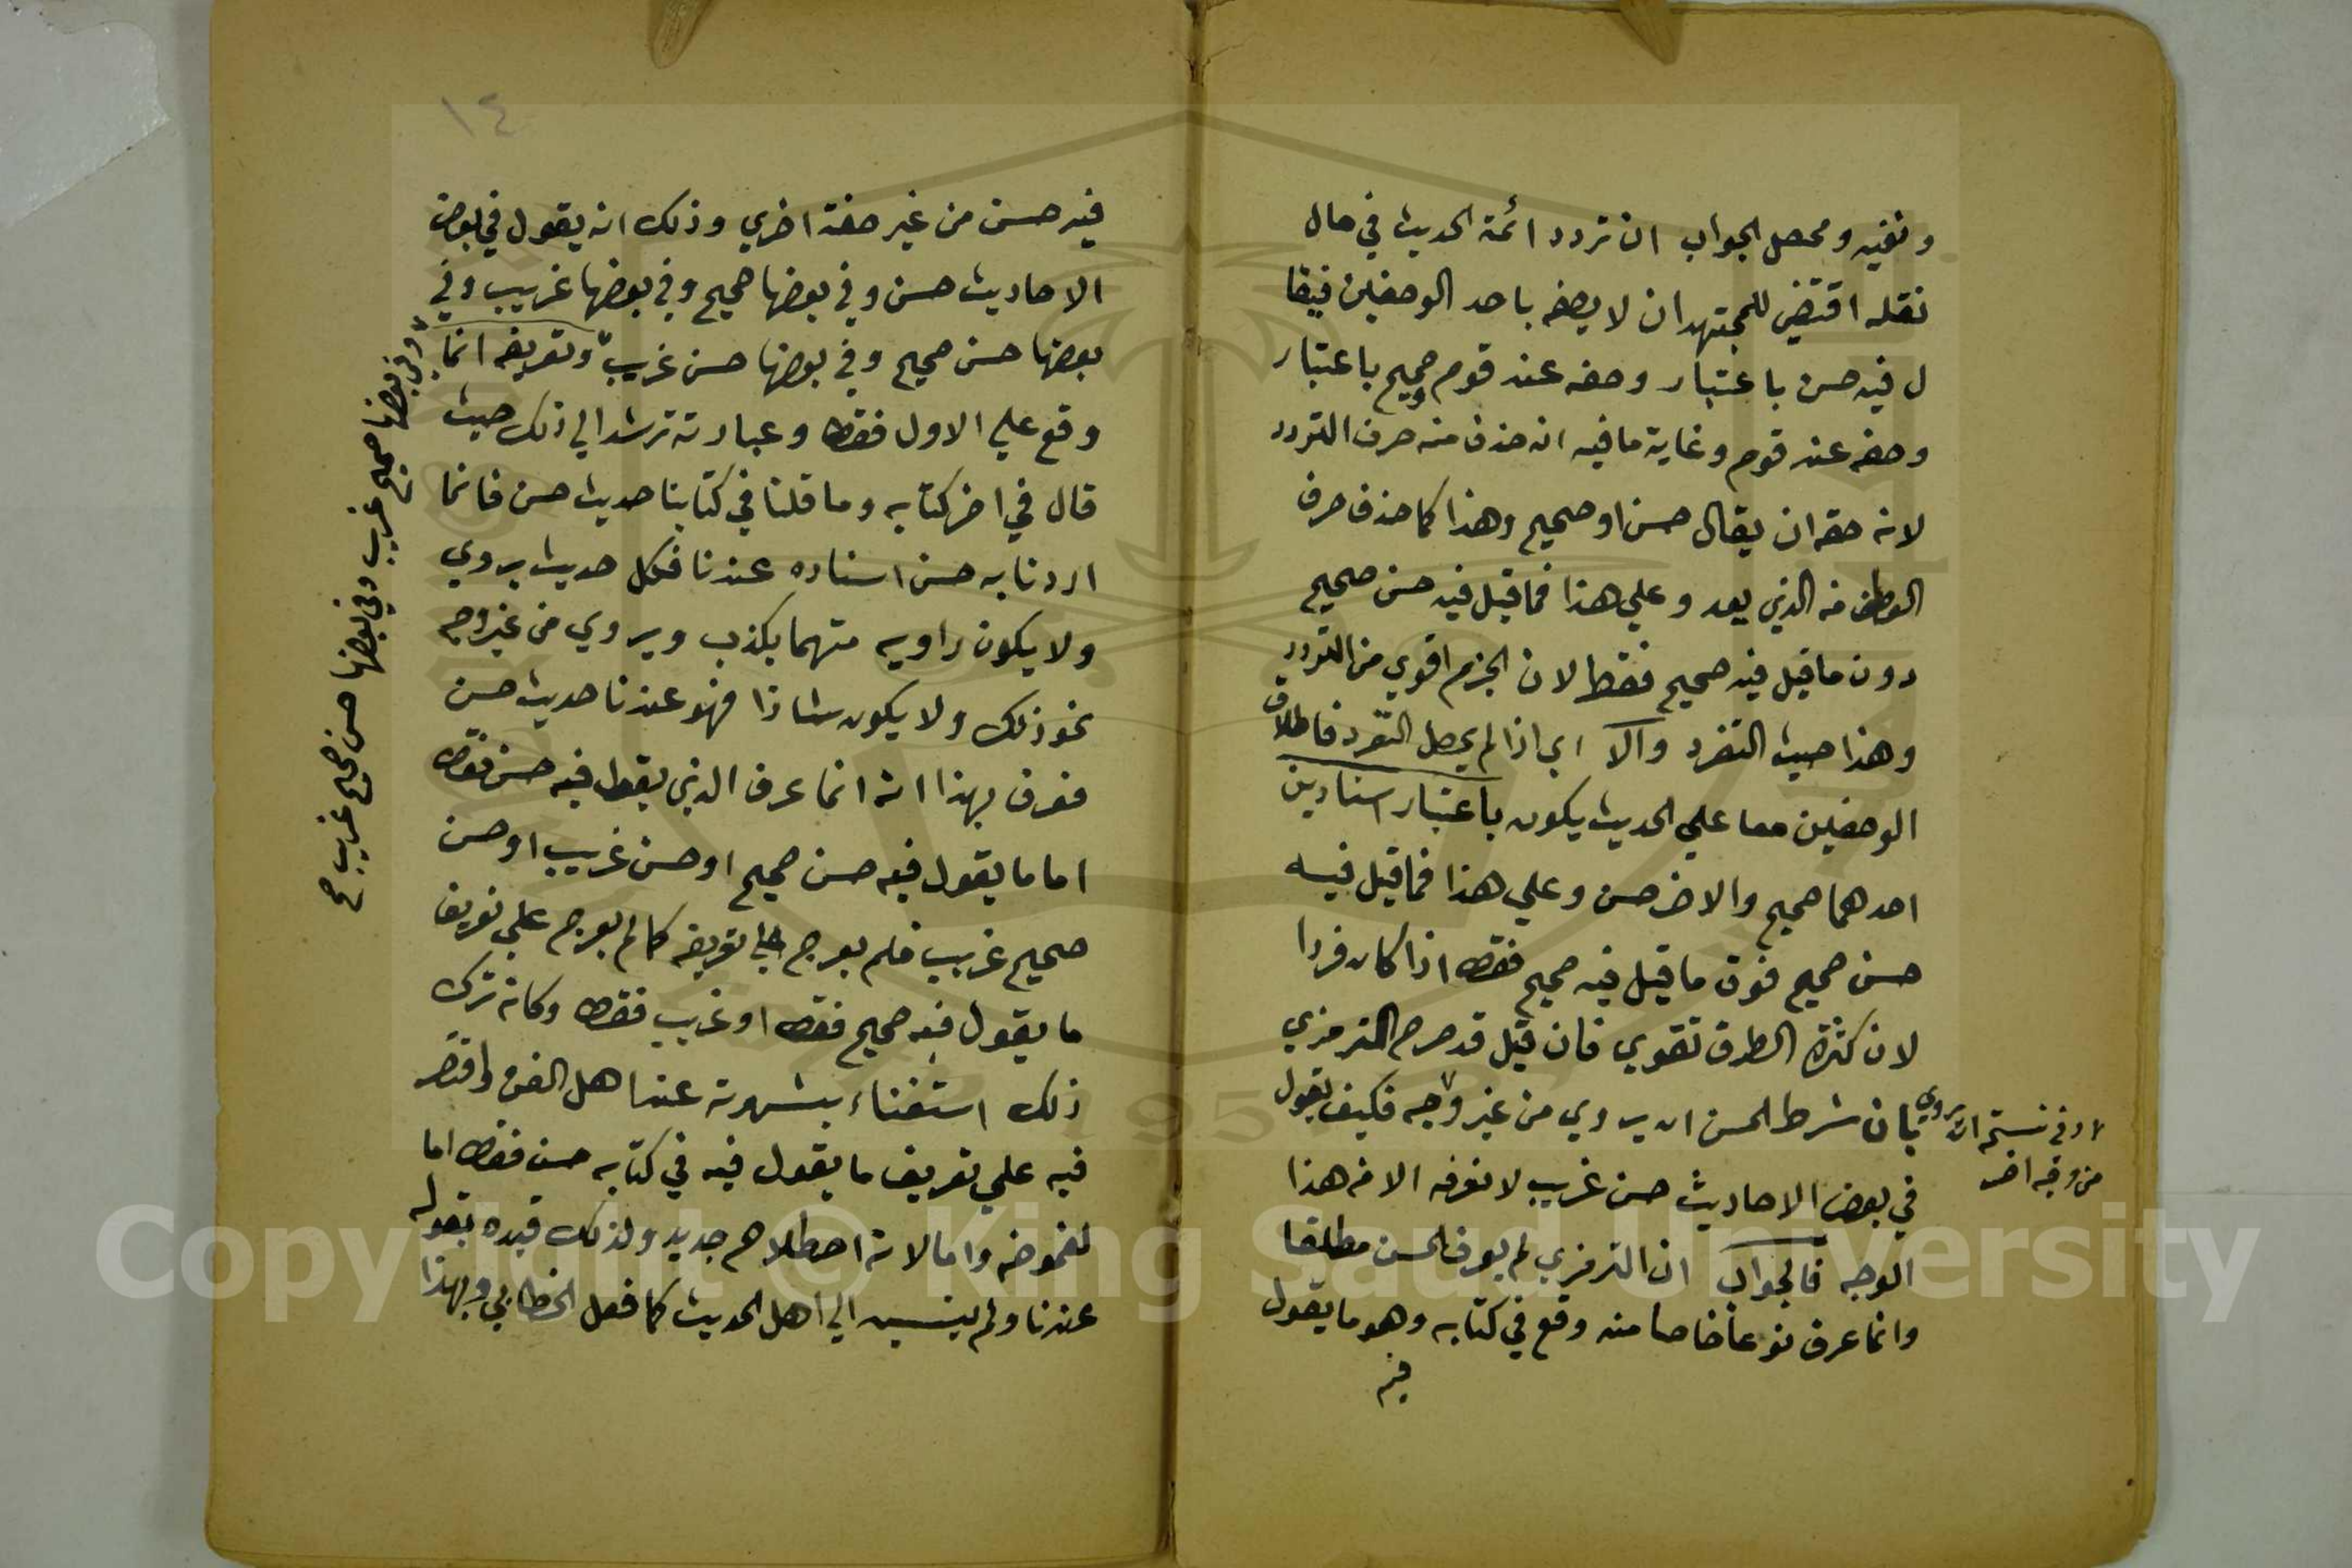 ونفيه ومحصل الجواب ان تردد ائمة الحديث في حال
نقله اقتضي للمجتهد ان لا يصفه باحد الوصفين فيقا
ل فيه حسن باعتبار وصفه عند قوم صحيح باعتبار
وصفه عند قوم وغاية ما فيه انه حذف منه حرف التردد
لانه حقه ان يقال حسن او صحيح وهذا كما حذف حرف
العطف من الذي يعد وعلي هذا فما قيل فيه حسن صحيح
دون ما قيل فيه صحيح فقط لان الجزم اقوي من التردد
وهذا حيث التفرد والا اي اذا لم يحصل التفرد فاطلاق
الوصفين معا علي الحديث يكون باعتبار اسنادين
احدهما صحيح والاخر حسن وعلي هذا فما قيل فيه
حسن صحيح فوق ما قيل فيه صحيح فقط اذا كان فردا
لان كثرة الطرق تقوي فان قيل قد صرح الترمزي
بان شرط الحسن ان يروي من غير وجه فكيف يقول
في بعض الاحاديث حسن غريب لا نعرفه الا من هذا
الوجه فالجواب ان الترمزي لم يعرف الحسن مطلقا
وانما عرف نوعا خاصا منه وقع في كتابه وهو ما يقول
فيه
وفي نسخة ان يروي
من وجه اخر
١٤
فيه حسن من غير صفة اخري وذلك انه يقول في بعض
الاحاديث حسن وفي بعضها صحيح وفي بعضها غريب وفي
بعضها حسن صحيح وفي بعضها حسن غريب وتعريفه انما
وقع علي الاول فقط وعبارته ترشد الي ذلك حيث
قال في اخر كتابه وما قلنا في كتابنا حديث حسن فانما
اردنا به حسن اسناده عندنا فكل حديث يروي
ولا يكون راويه متهما بكذب ويروي من غير وجه
نحو ذلك ولا يكون شاذا فهو عندنا حديث حسن
فعرف بهذا انه انما عرف الذي يقول فيه حسن فقط
اما ما يقول فيه حسن صحيح او حسن غريب او حسن
صحيح غريب فلم يعرج علي تعريفه كما لم يعرج علي تعريف
ما يقول فيه صحيح فقط او غريب فقط وكانه ترك
ذلك استغناء بشهرته عند اهل الفن واقتصر
فيه علي تعريف ما يقول فيه في كتابه حسن فقط اما
لغموضه واما لانه اصطلاح جديد ولذلك قيده بقوله
عندنا ولم ينسبه الي اهل الحديث كما فعل الخطابي وبهذا
وفي بعضها صحيح غريب وفي بعضها حسن صحيح غريب صح
Copyright © King Saud University